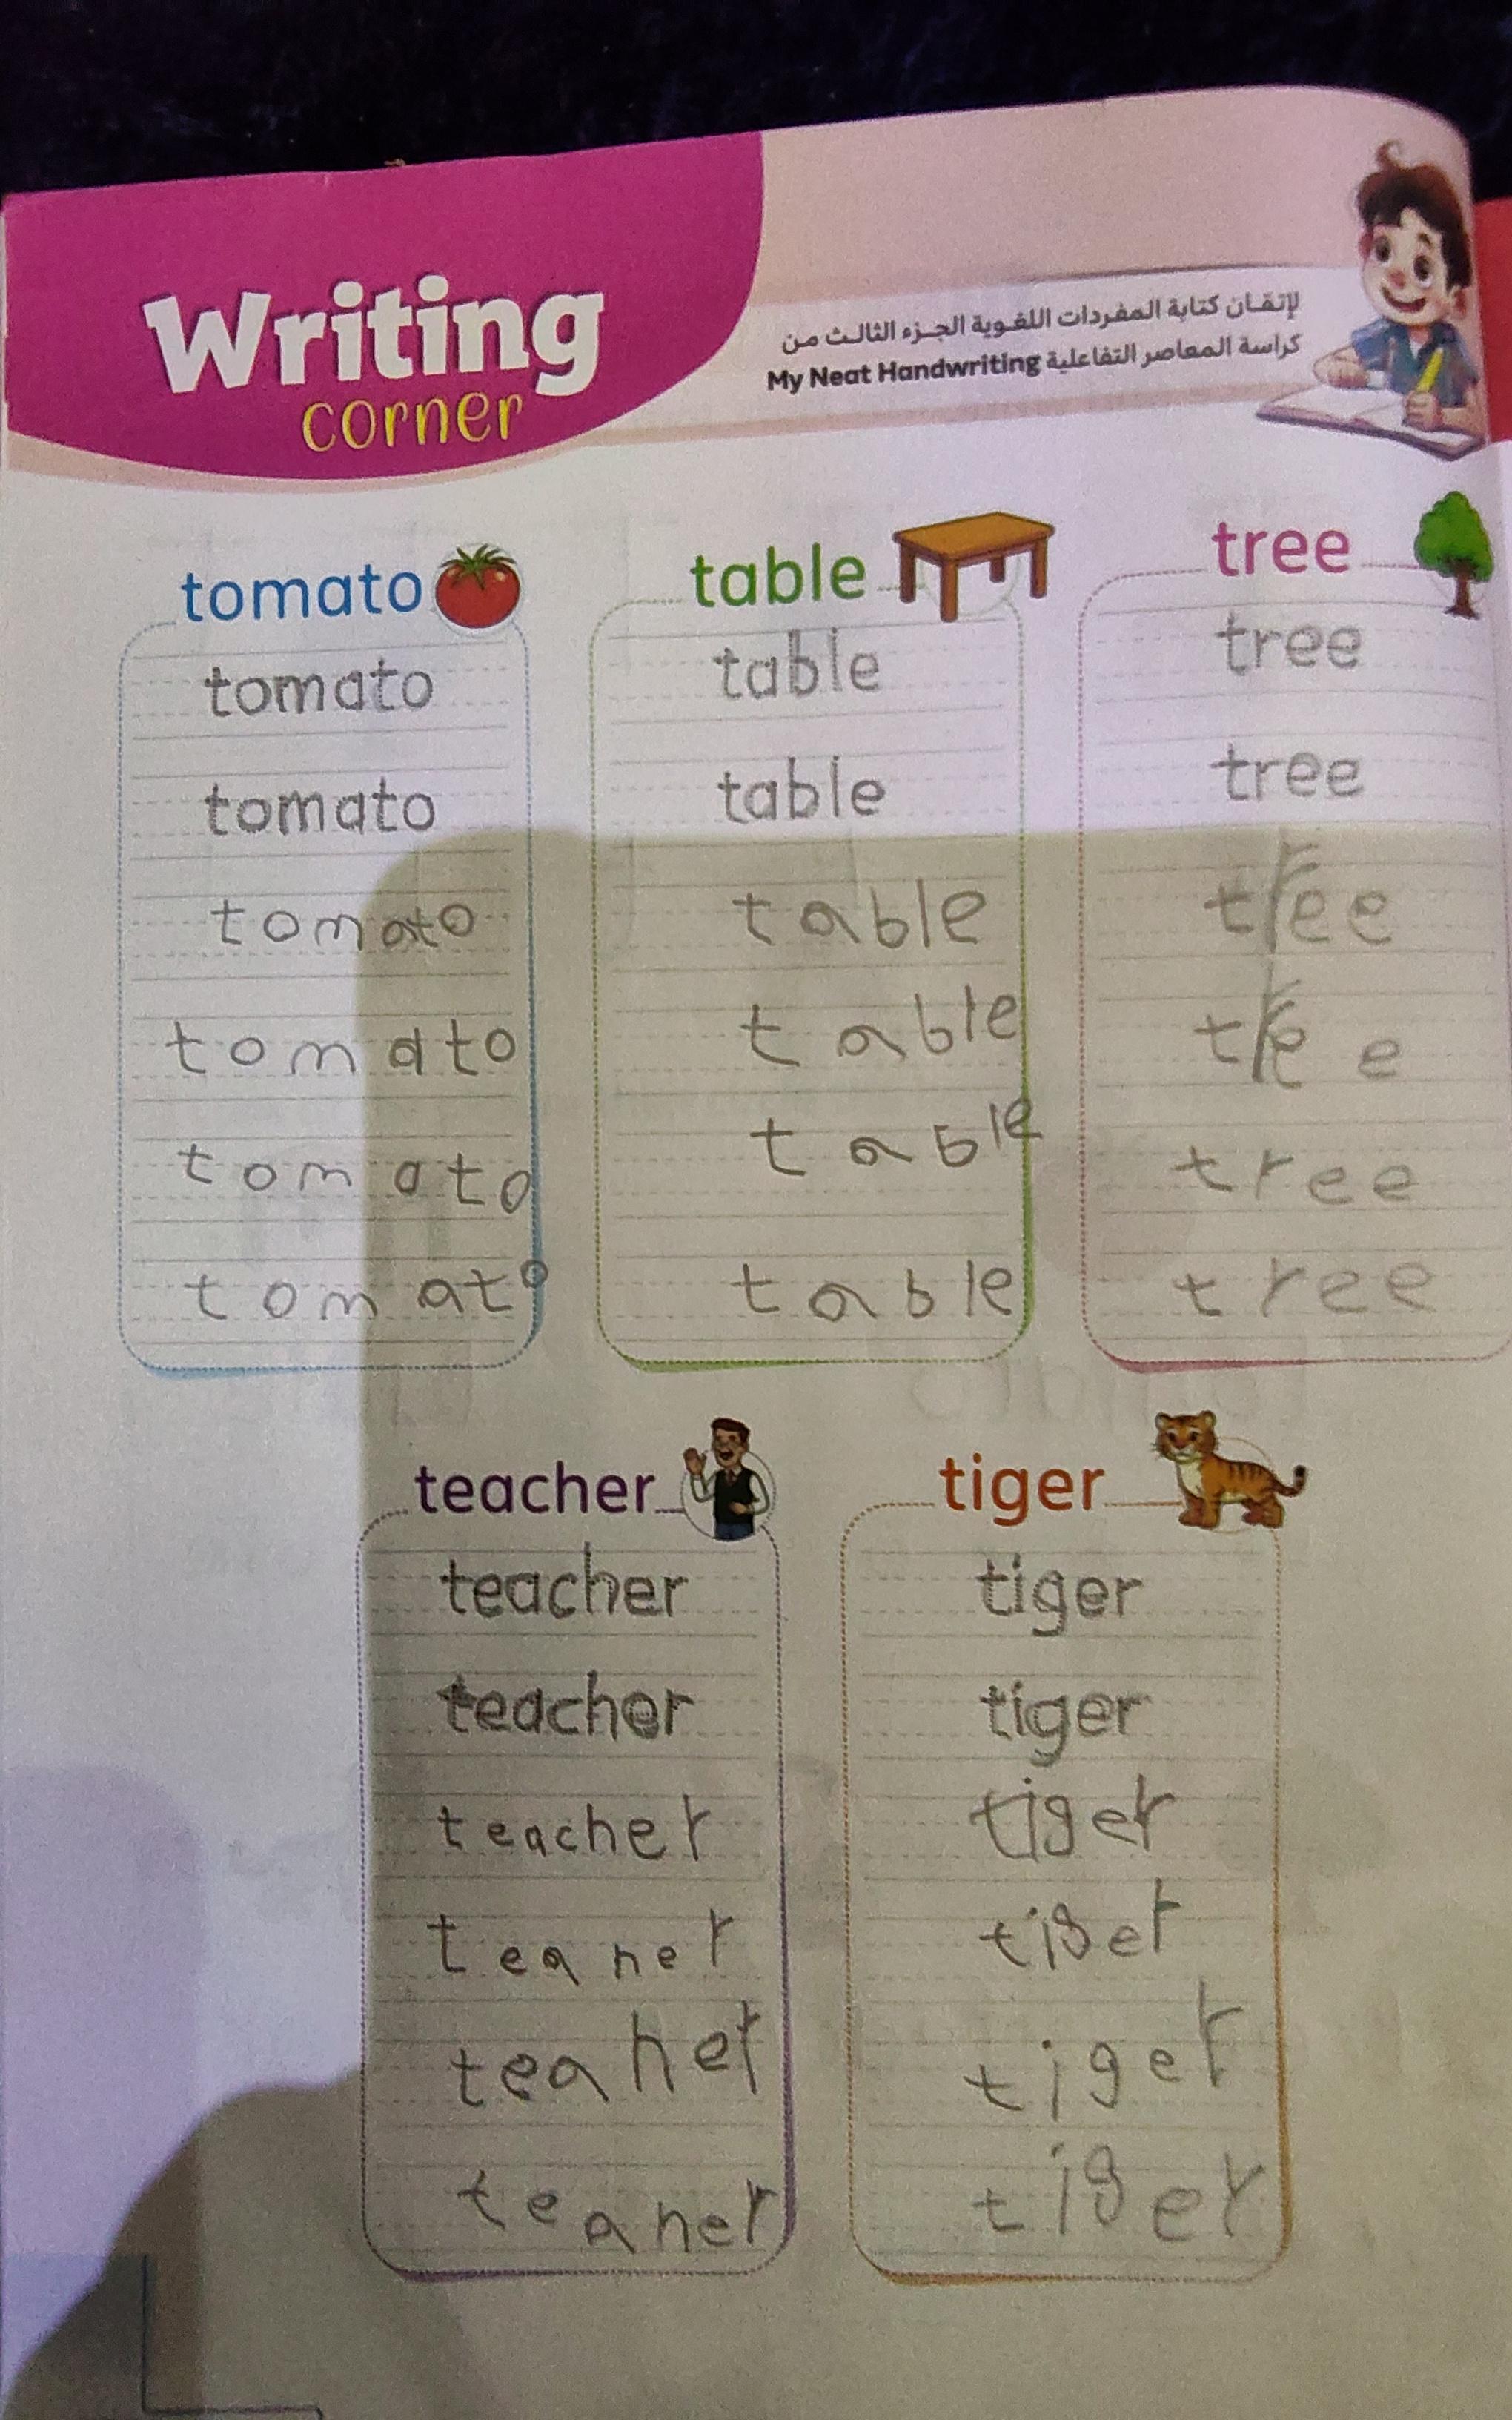 Writing
corner
لإتقان كتابة المفردات اللغوية الجزء الثالث من
كراسة المعاصر التفاعلية My Neat Handwriting
tomato
tomato
tomato
tomato
tomato
tomato
tomato
table
table
table
table
table
table
table
tree
tree
tree
tree
tree
tree
tree
teacher
teacher
teacher
teacher
teaher
teaher
teaher
tiger
tiger
tiger
tiger
tiger
tiger
tiger